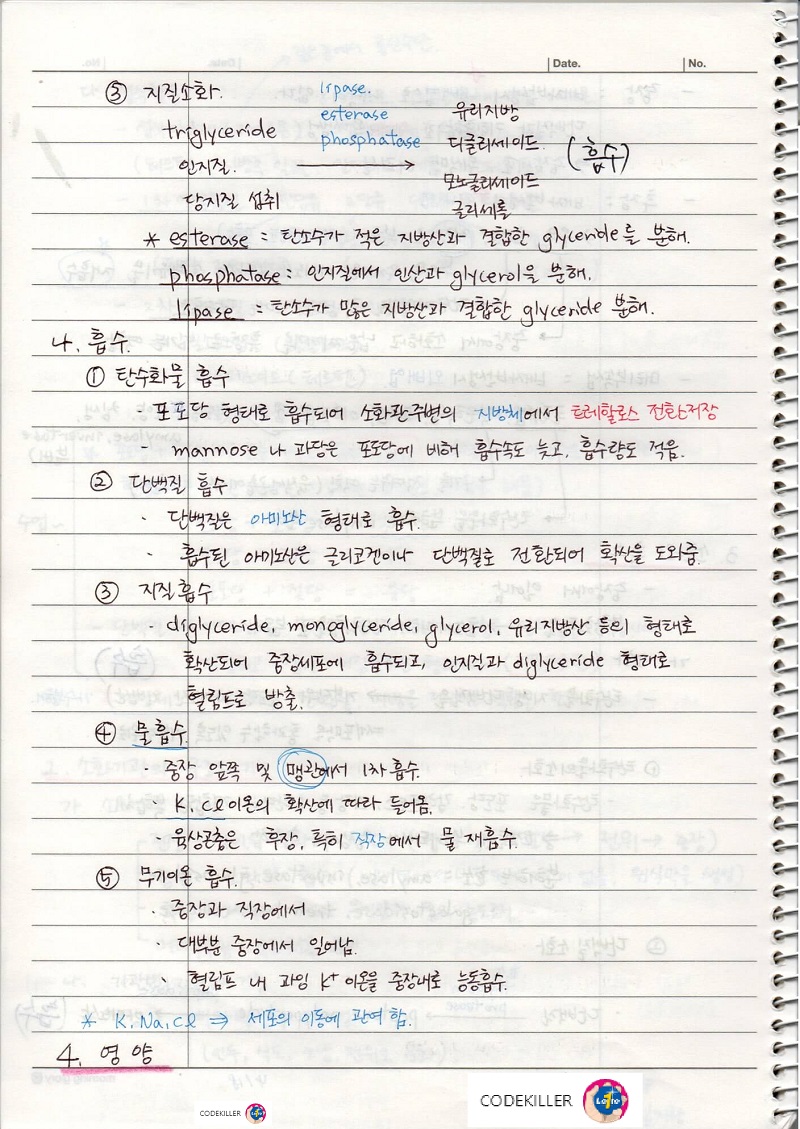 Date. No.
③ 지질소화. lipase.
esterase 유리지방
triglyceride phosphatase 디글리세이드. (흡수)
인지질. → 모노글리세이드
당지질 섭취 글리세롤
* esterase : 탄소수가 적은 지방산과 결합한 glyceride를 분해.
phosphatase : 인지질에서 인산과 glycerol을 분해.
lipase : 탄소수가 많은 지방산과 결합한 glyceride 분해.
4. 흡수.
① 탄수화물 흡수
- 포도당 형태로 흡수되어 소화관주변의 지방체에서 트레할로스 전환저장
- mannose 나 과당은 포도당에 비해 흡수속도 늦고, 흡수량도 적음.
② 단백질 흡수
· 단백질은 아미노산 형태로 흡수.
· 흡수된 아미노산은 글리코겐이나 단백질로 전환되어 확산을 도와줌.
③ 지질흡수
· diglyceride, monoglyceride, glycerol, 유리지방산 등의 형태로
확산되어 중장세포에 흡수되고, 인지질과 diglyceride 형태로
혈림프로 방출.
④ 물흡수.
· 중장 앞쪽 및 맹관에서 1차 흡수.
· K, Cl 이온의 확산에 따라 들어옴.
· 육상곤충은 후장, 특히 직장에서 물 재흡수.
⑤ 무기이온 흡수.
· 중장과 직장에서
· 대부분 중장에서 일어남.
· 혈림프 내 과잉 K+ 이온을 중장내로 능동흡수.
* K, Na, Cl ⇒ 세포의 이동에 관여 함.
4. 영양
CODEKILLER
CODEKILLER